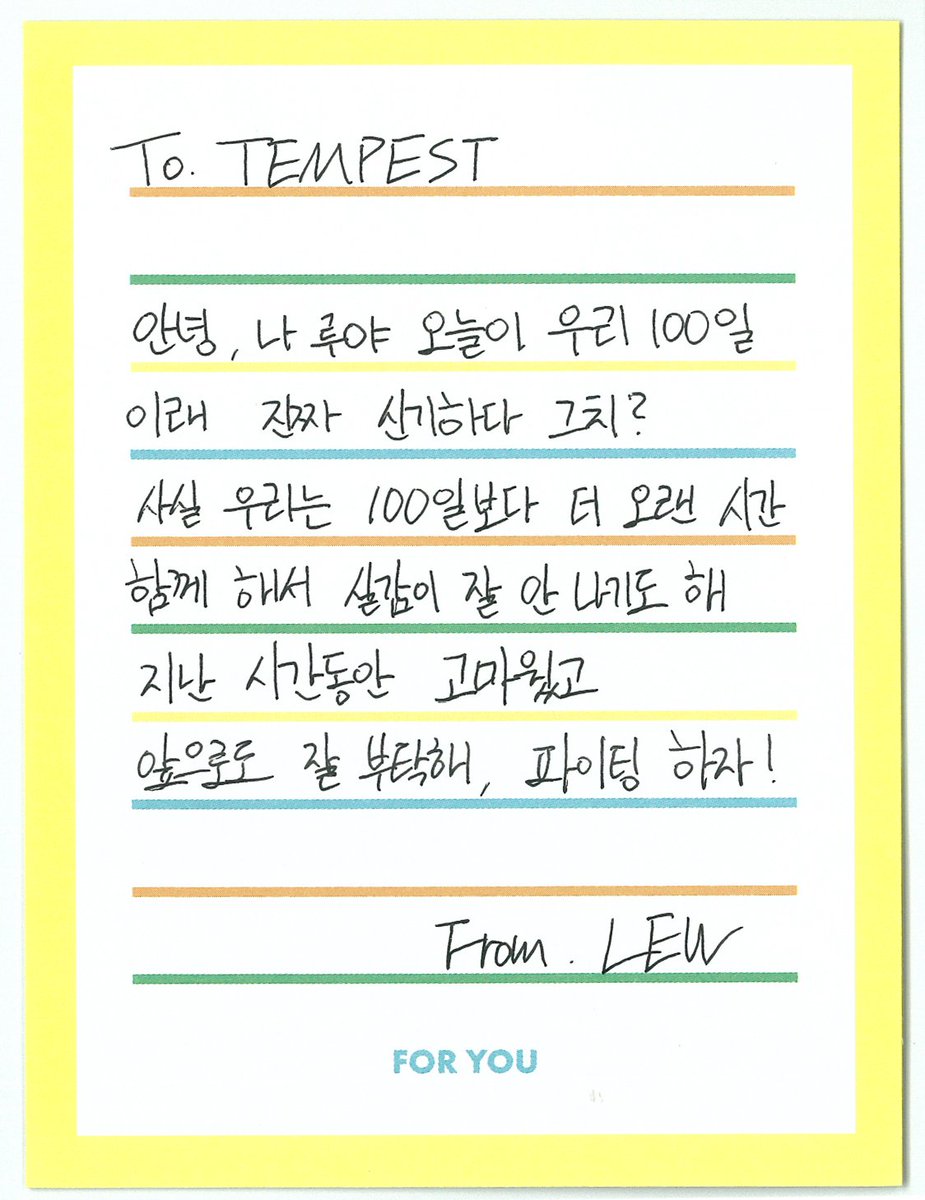 To. TEMPEST
안녕, 나 루야 오늘이 우리 100일
이래 진짜 신기하다 그치?
사실 우리는 100일보다 더 오랜 시간
함께 해서 실감이 잘 안 나기도 해
지난 시간동안 고마웠고
앞으로도 잘 부탁해, 파이팅 하자!
From. LEW
FOR YOU